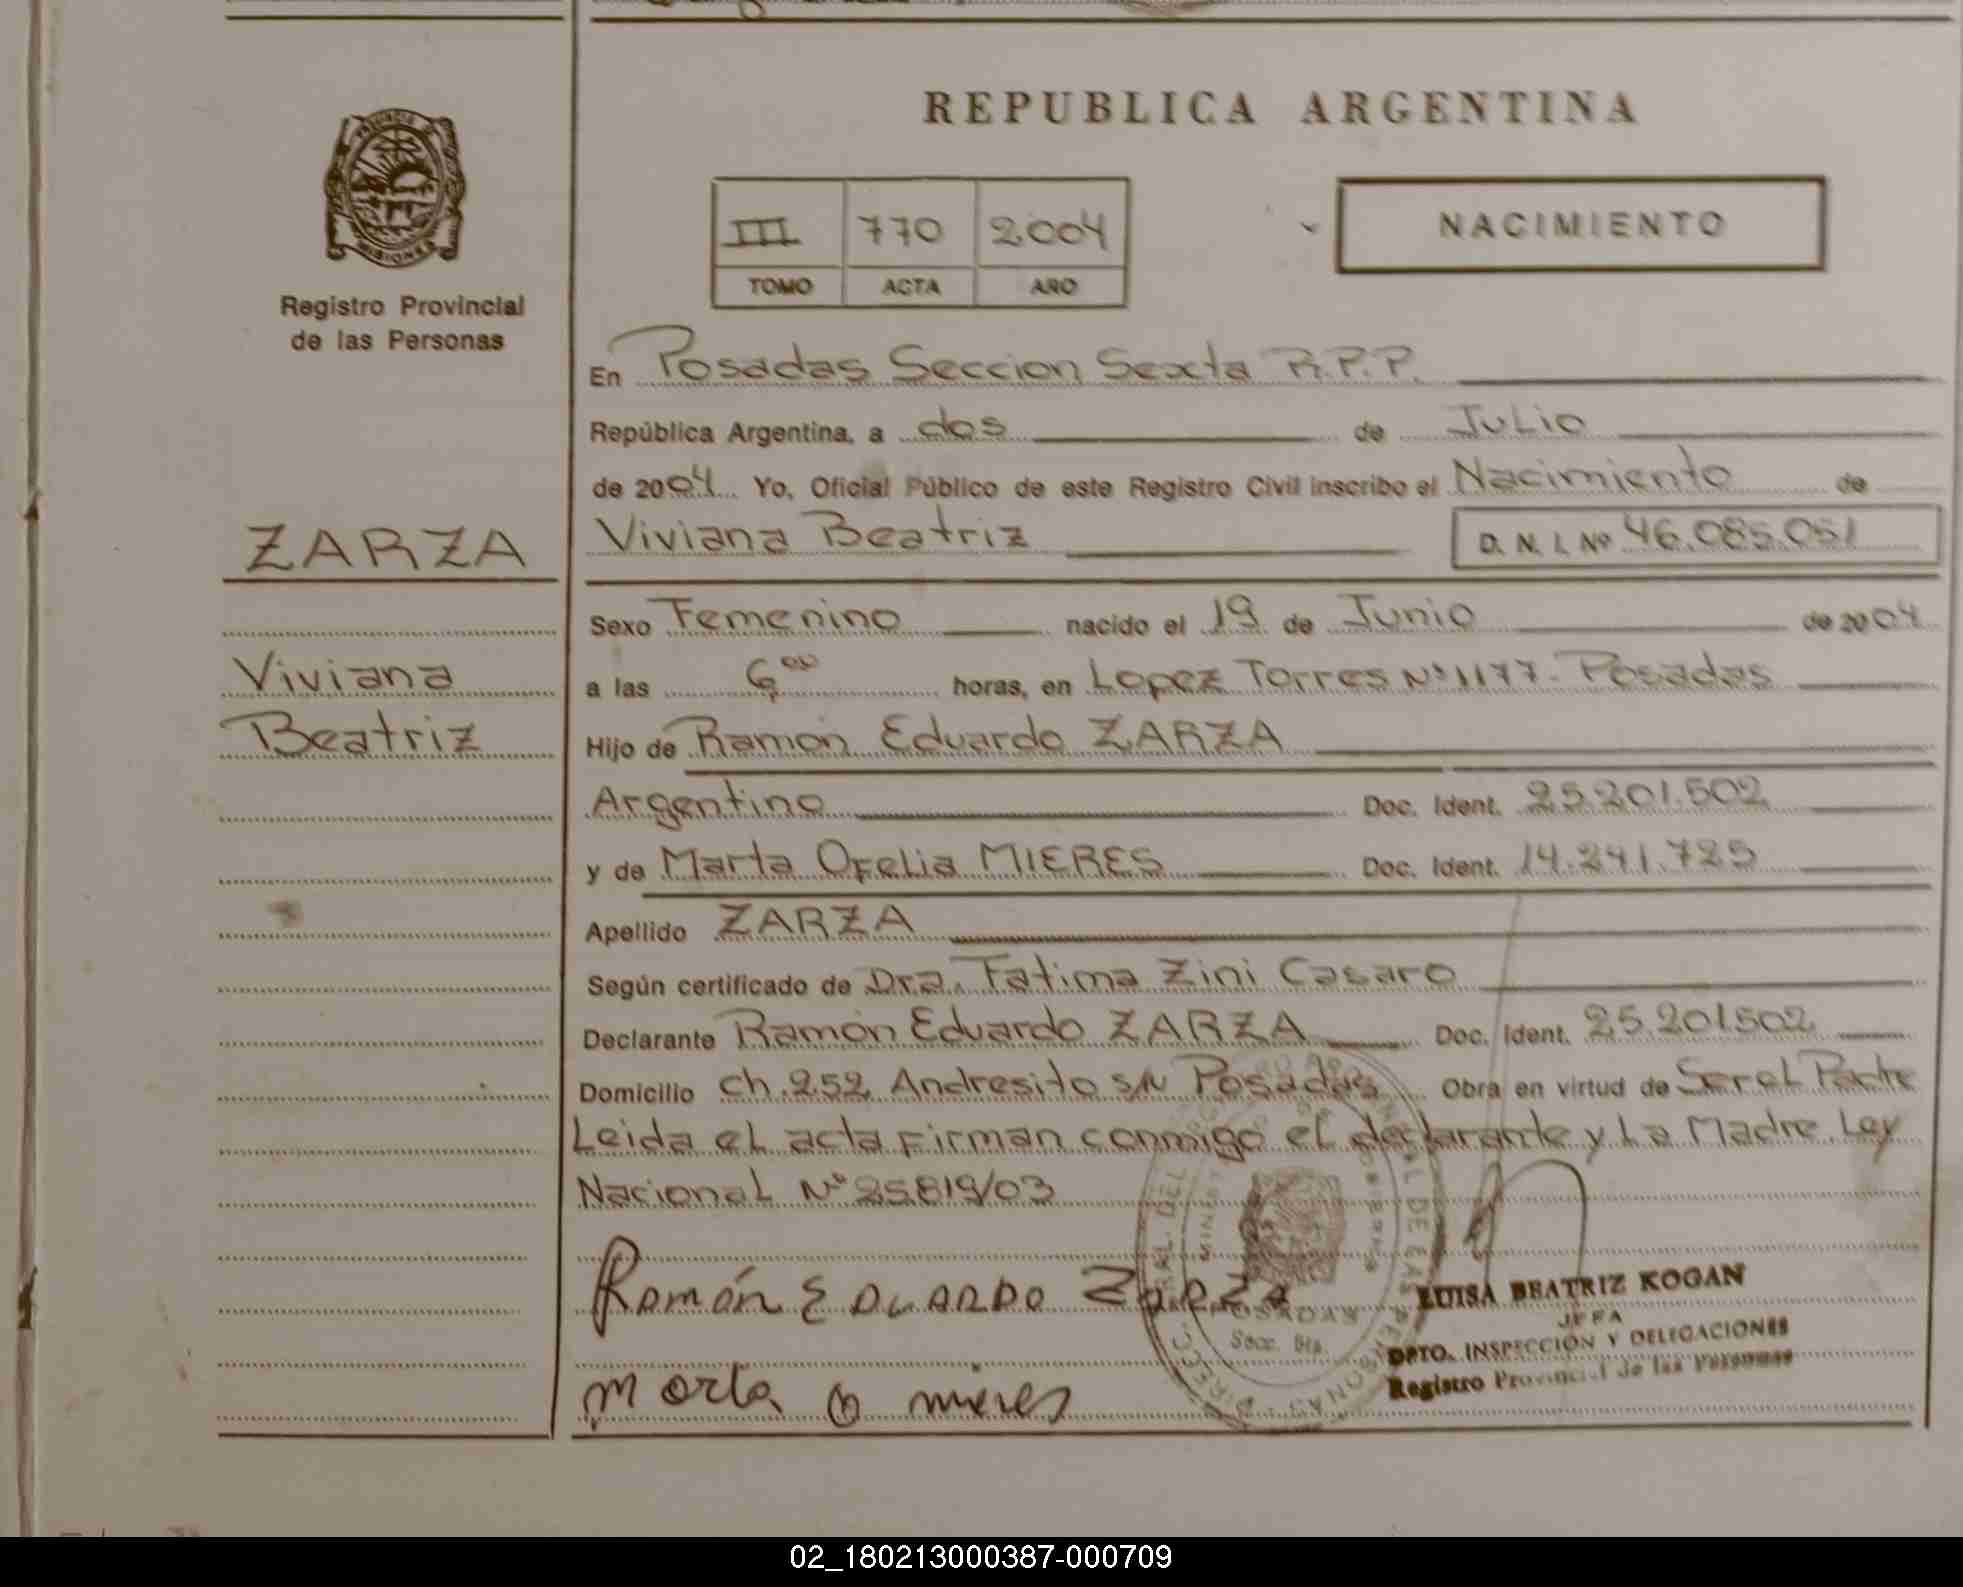 REPUBLICA ARGENTINA
PROVINCIA DE
MISIONES
Registro Provincial
de las Personas
III 770 2004
TOMO ACTA AÑO
NACIMIENTO
En Posadas Seccion Sexta R.P.P.
República Argentina, a dos de Julio
de 2004 Yo, Oficial Público de este Registro Civil inscribo el Nacimiento de
ZARZA
Viviana Beatriz D. N. I. Nº 46.085.051
Sexo Femenino nacido el 19 de Junio de 2004
Viviana
a las 6 00 horas, en Lopez Torres Nº 1177. Posadas
Beatriz
Hijo de Ramón Eduardo ZARZA
Argentino Doc. Ident. 25.201.502
y de Marta Ofelia MIERES Doc. Ident. 14.241.725
Apellido ZARZA
Según certificado de Dra. Fatima Zini Casaro
Declarante Ramón Eduardo ZARZA Doc. Ident. 25.201502
Domicilio Ch. 252 Andresito s/n Posadas Obra en virtud de Ser el Padre
Leida el acta firman conmigo el declarante y La Madre. Ley
Nacional Nº 25819/03
Ramón EDUARDO ZARZA
Marta O mieres
POSADAS
Secc. 6ta.
LUISA BEATRIZ KOGAN
JEFA
DPTO. INSPECCIÓN Y DELEGACIONES
Registro Provincial de las Personas
02_180213000387-000709